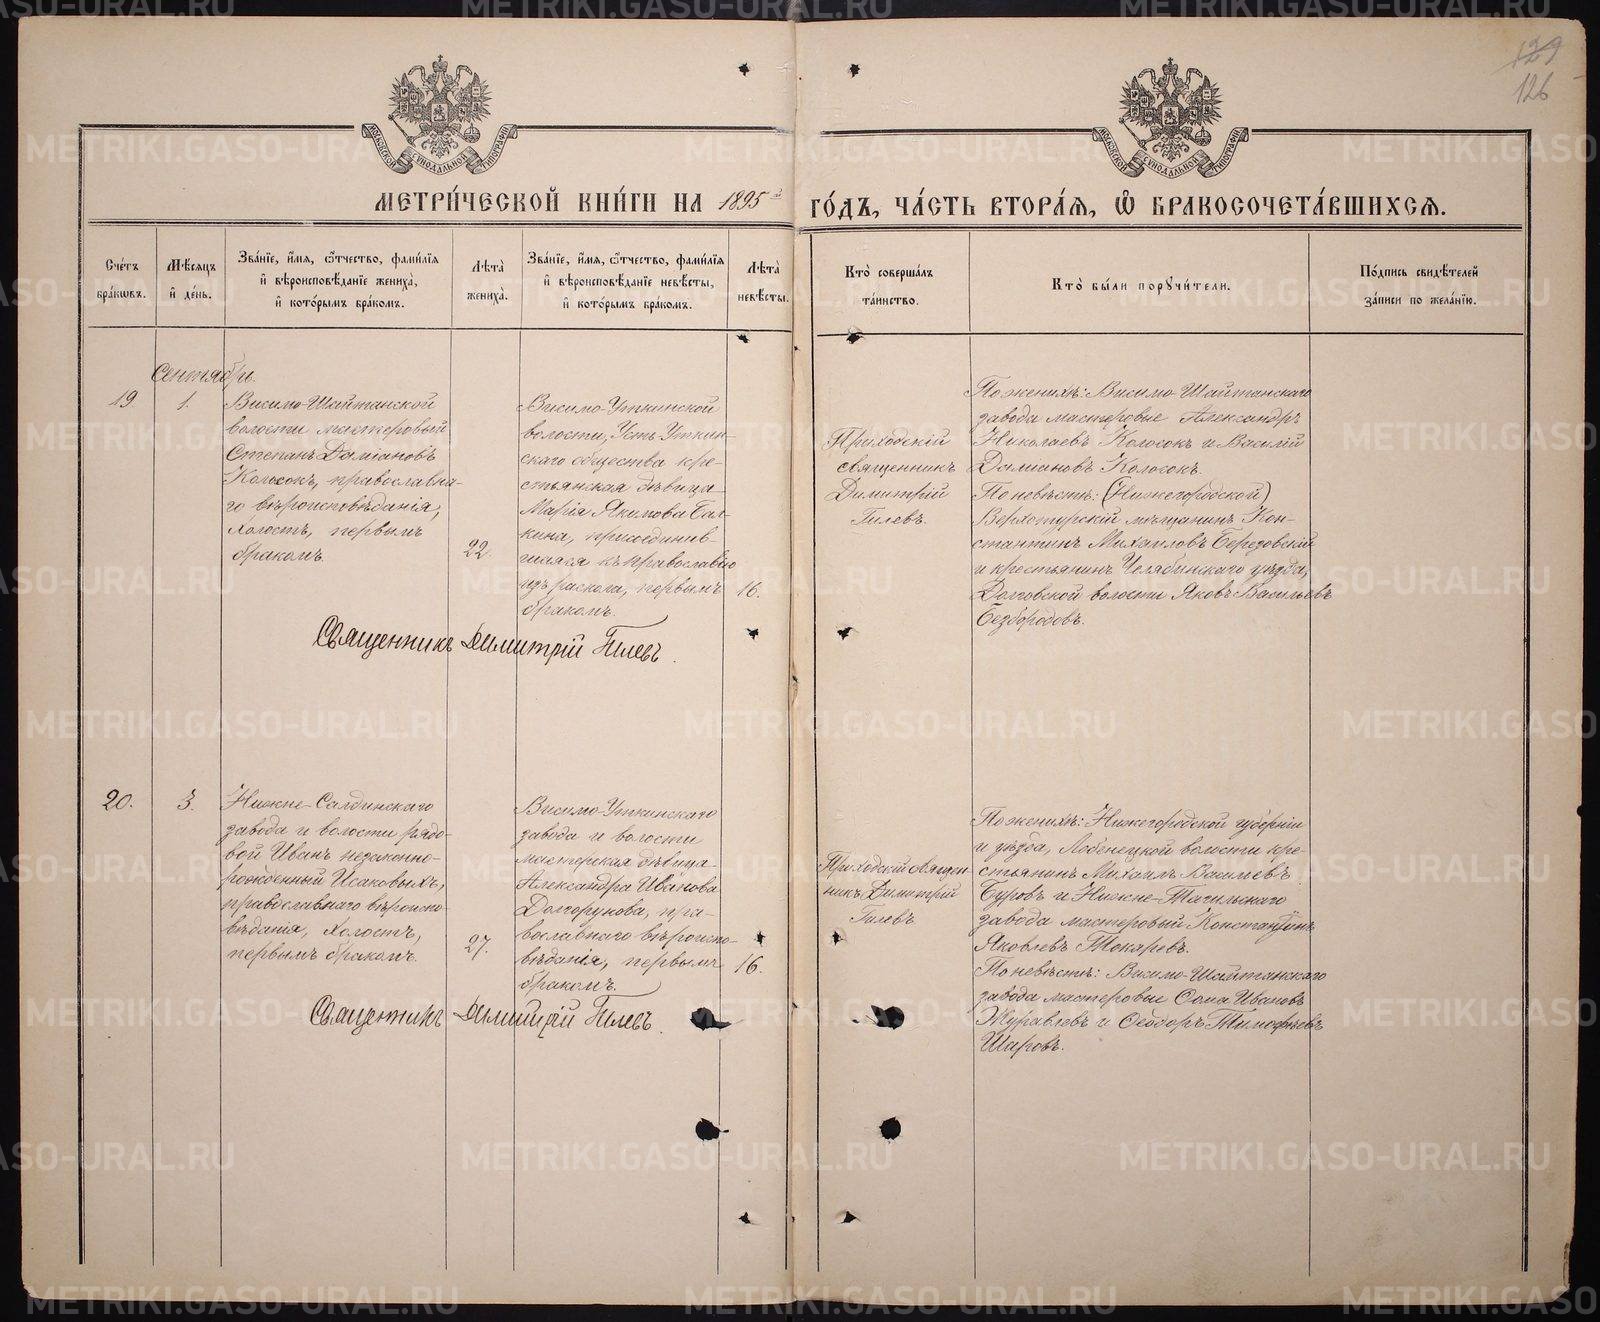 129
126
МОСКОВСКОЙ СѴНОДАЛЬНОЙ ТИПОГРАФІИ
МОСКОВСКОЙ СѴНОДАЛЬНОЙ ТИПОГРАФІИ
МЕТРИ́ЧЕСКОЙ КНИ́ГИ НА 1895й ГО́ДЪ, ЧА́СТЬ ВТОРА́Я, Ѽ БРАКОСОЧЕТА́ВШИХСЯ.
Сче́тъ
бра́кѡвъ.
Мѣ́сяцъ
и҆ де́нь.
Зва́нїе, и҆́мя, ѻ҆́тчество, фами́лїя
и҆ вѣроисповѣ́данїе жениха̀,
и҆ кото́рымъ бра́комъ.
Лѣ́та̀
жениха̀.
Зва́нїе, и҆́мя, ѻ҆́тчество, фами́лїя
и҆ вѣроисповѣ́данїе невѣ́сты,
и҆ кото́рымъ бра́комъ.
Лѣ́та̀
невѣ́сты.
Кто̀ соверша́лъ
та́инство.
Кто̀ бы́ли порꙋчи́тели.
По́дпись свидѣ́телей
за́писи по жела́нїю.
Сентябрь.
19
1.
Висимо-Шайтанской
волости мастеровый
Степанъ Даміановъ
Колосокъ, православна-
го вѣроисповѣданія,
холостъ, первымъ
бракомъ.
22.
Висимо-Уткинской
волости, Усть-Уткин-
скаго общества кре-
стьянская дѣвица
Марія Якимова Бал-
кина, присоединив-
шаяся къ православію
изъ раскола, первымъ
бракомъ.
16.
Приходскій
священникъ
Димитрій
Гилевъ.
По женихѣ: Висимо-Шайтанскаго
завода мастеровые Александръ
Николаевъ Колосокъ и Василій
Даміановъ Колосокъ.
По невѣстѣ: (Нижегородской)
Верхотурскій мѣщанинъ Кон-
стантинъ Михаиловъ Березовскій
и крестьянинъ Челябинскаго уѣзда,
Долговской волости Яковъ Васильевъ
Безбородовъ.
Священникъ Димитрій Гилевъ.
20.
3.
Нижне-Салдинскаго
завода и волости рядо-
вой Иванъ незаконно-
рожденный Исаковыхъ,
православнаго вѣроиспо-
вѣданія, холостъ,
первымъ бракомъ.
27.
Висимо-Уткинскаго
завода и волости
мастерская дѣвица
Александра Иванова
Долгорукова, пра-
вославнаго вѣроиспо-
вѣданія, первымъ
бракомъ.
16.
Приходскій священ-
никъ Димитрій
Гилевъ.
По женихѣ: Нижегородской губерніи
и уѣзда, волости кре-
стьянинъ Михаилъ Васильевъ
Буровъ и Нижне-Тагильскаго
завода мастеровый Константинъ
Яковлевъ Токаревъ.
По невѣстѣ: Висимо-Шайтанскаго
завода мастеровые Ѳома Ивановъ
Журавлевъ и Ѳеодоръ Тимофѣевъ
Шаровъ.
Священникъ Димитрій Гилевъ.